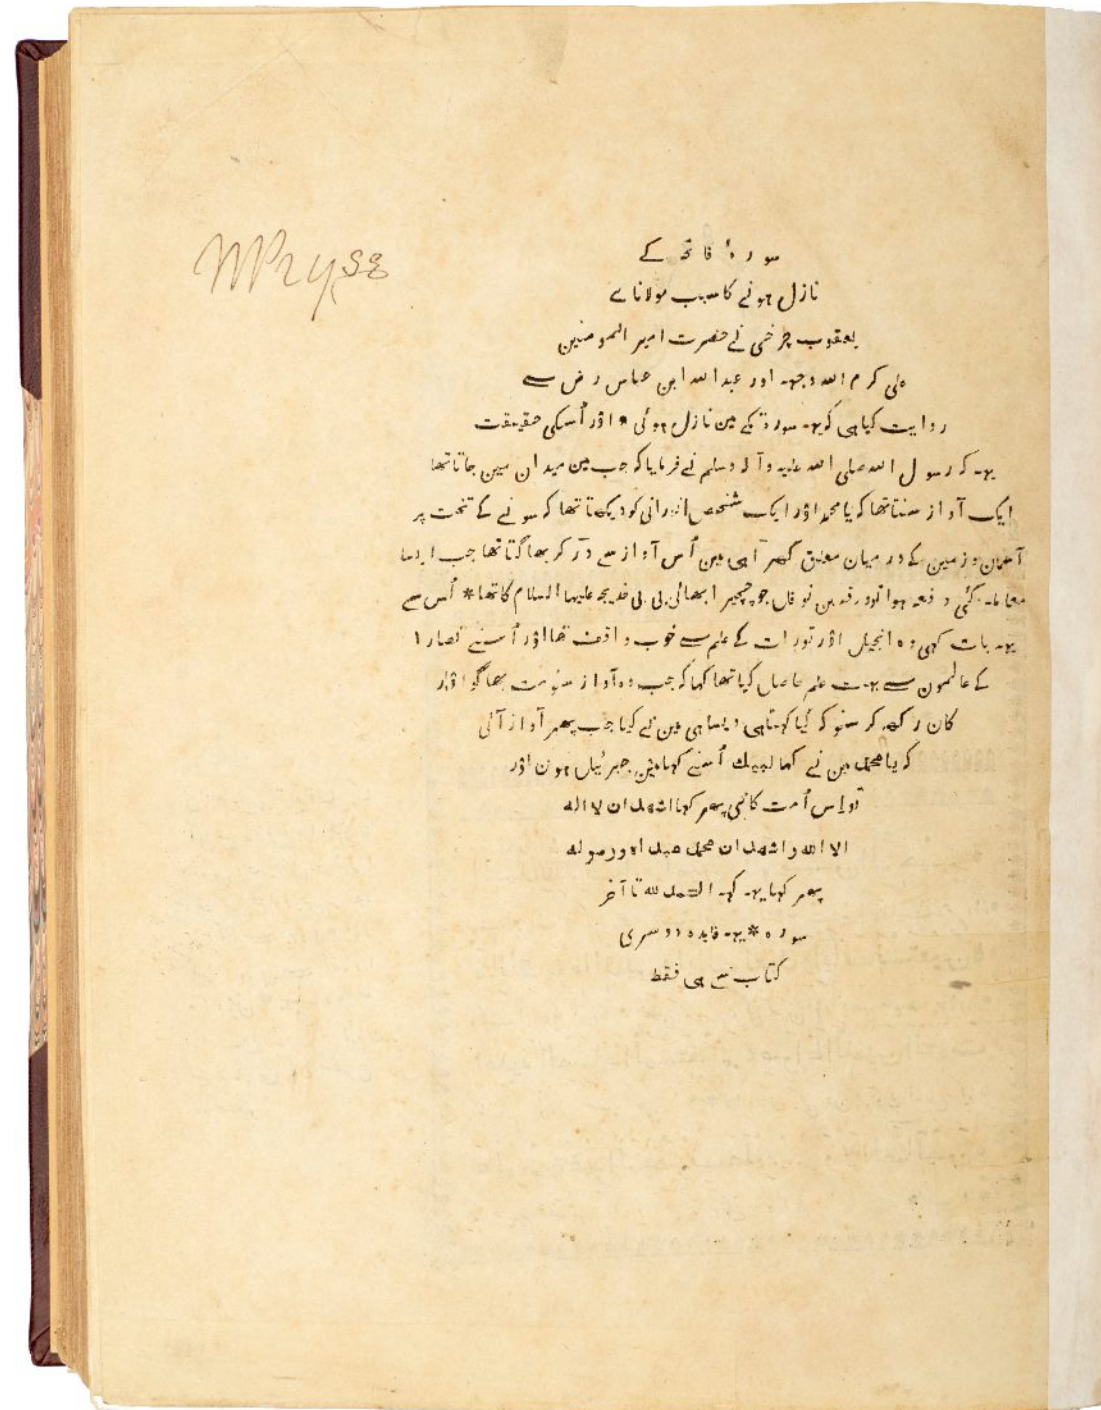 سورۂ فاتحہ کے
نازل ہونے کا سبب مولاناے
یعقوب چرخی نے حضرت امیر المومنین
علی کرم اللہ وجہہ اور عبد اللہ ابن عباس رض سے
روایت کیا ہی کہ یہہ سورۃ مکے مین نازل ہوئی * اوْر اُسکی حقیقت
یہہ کہ رسول اللہ صلی اللہ علیہ وآلہ وسلم نے فرمایا کہ جب مین میدان مین جاتا تھا
ایک آواز سنتا تھا کہ یا محمد اوْر ایک شخص نورانی کو دیکھتا تھا کہ سونے کے تخت پر
آسمان و زمین کے درمیان معلق کھڑا ہی مین اُس آواز سے ڈر کر بھاگتا تھا جب ایسا
معاملہ کئی دفعہ ہوا تو ورقہ بن نوفل جو چچیرا بھائی بی بی خدیجہ علیہا السلام کا تھا * اُس سے
یہہ بات کہی وہ انجیل اوْر تورات کے علم سے خوب واقف تھا اوْر اُسنے نصارا
کے عالمون سے بہت علم حاصل کیا تھا کہا کہ جب وہ آواز سنو مت بھاگو اوْر
کان رکھہ کر سنو کہ کیا کہتا ہی ویسا ہی مین نے کیا جب پھر آواز آئی
کہ یا محمد مین نے کہا لبیک اُسنے کہا مین جبرئیل ہون اوْر
تو اِس اُمت کا نبی پھر کہا اشهد ان لا اله
الا الله واشهد ان محمد عبده ورسوله
پھر کہا یہہ کہہ الحمد لله تا آخر
سورہ * یہہ فایدہ دوسری
کتاب سے ہی فقط